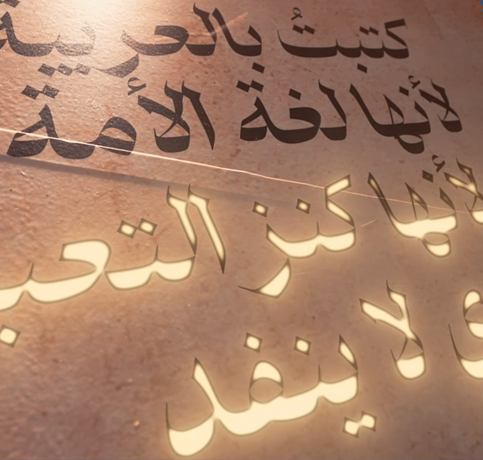 كتبتُ بالعربية
لأنها لغة الأمة
لأنها كنز التعب
لا ينفد